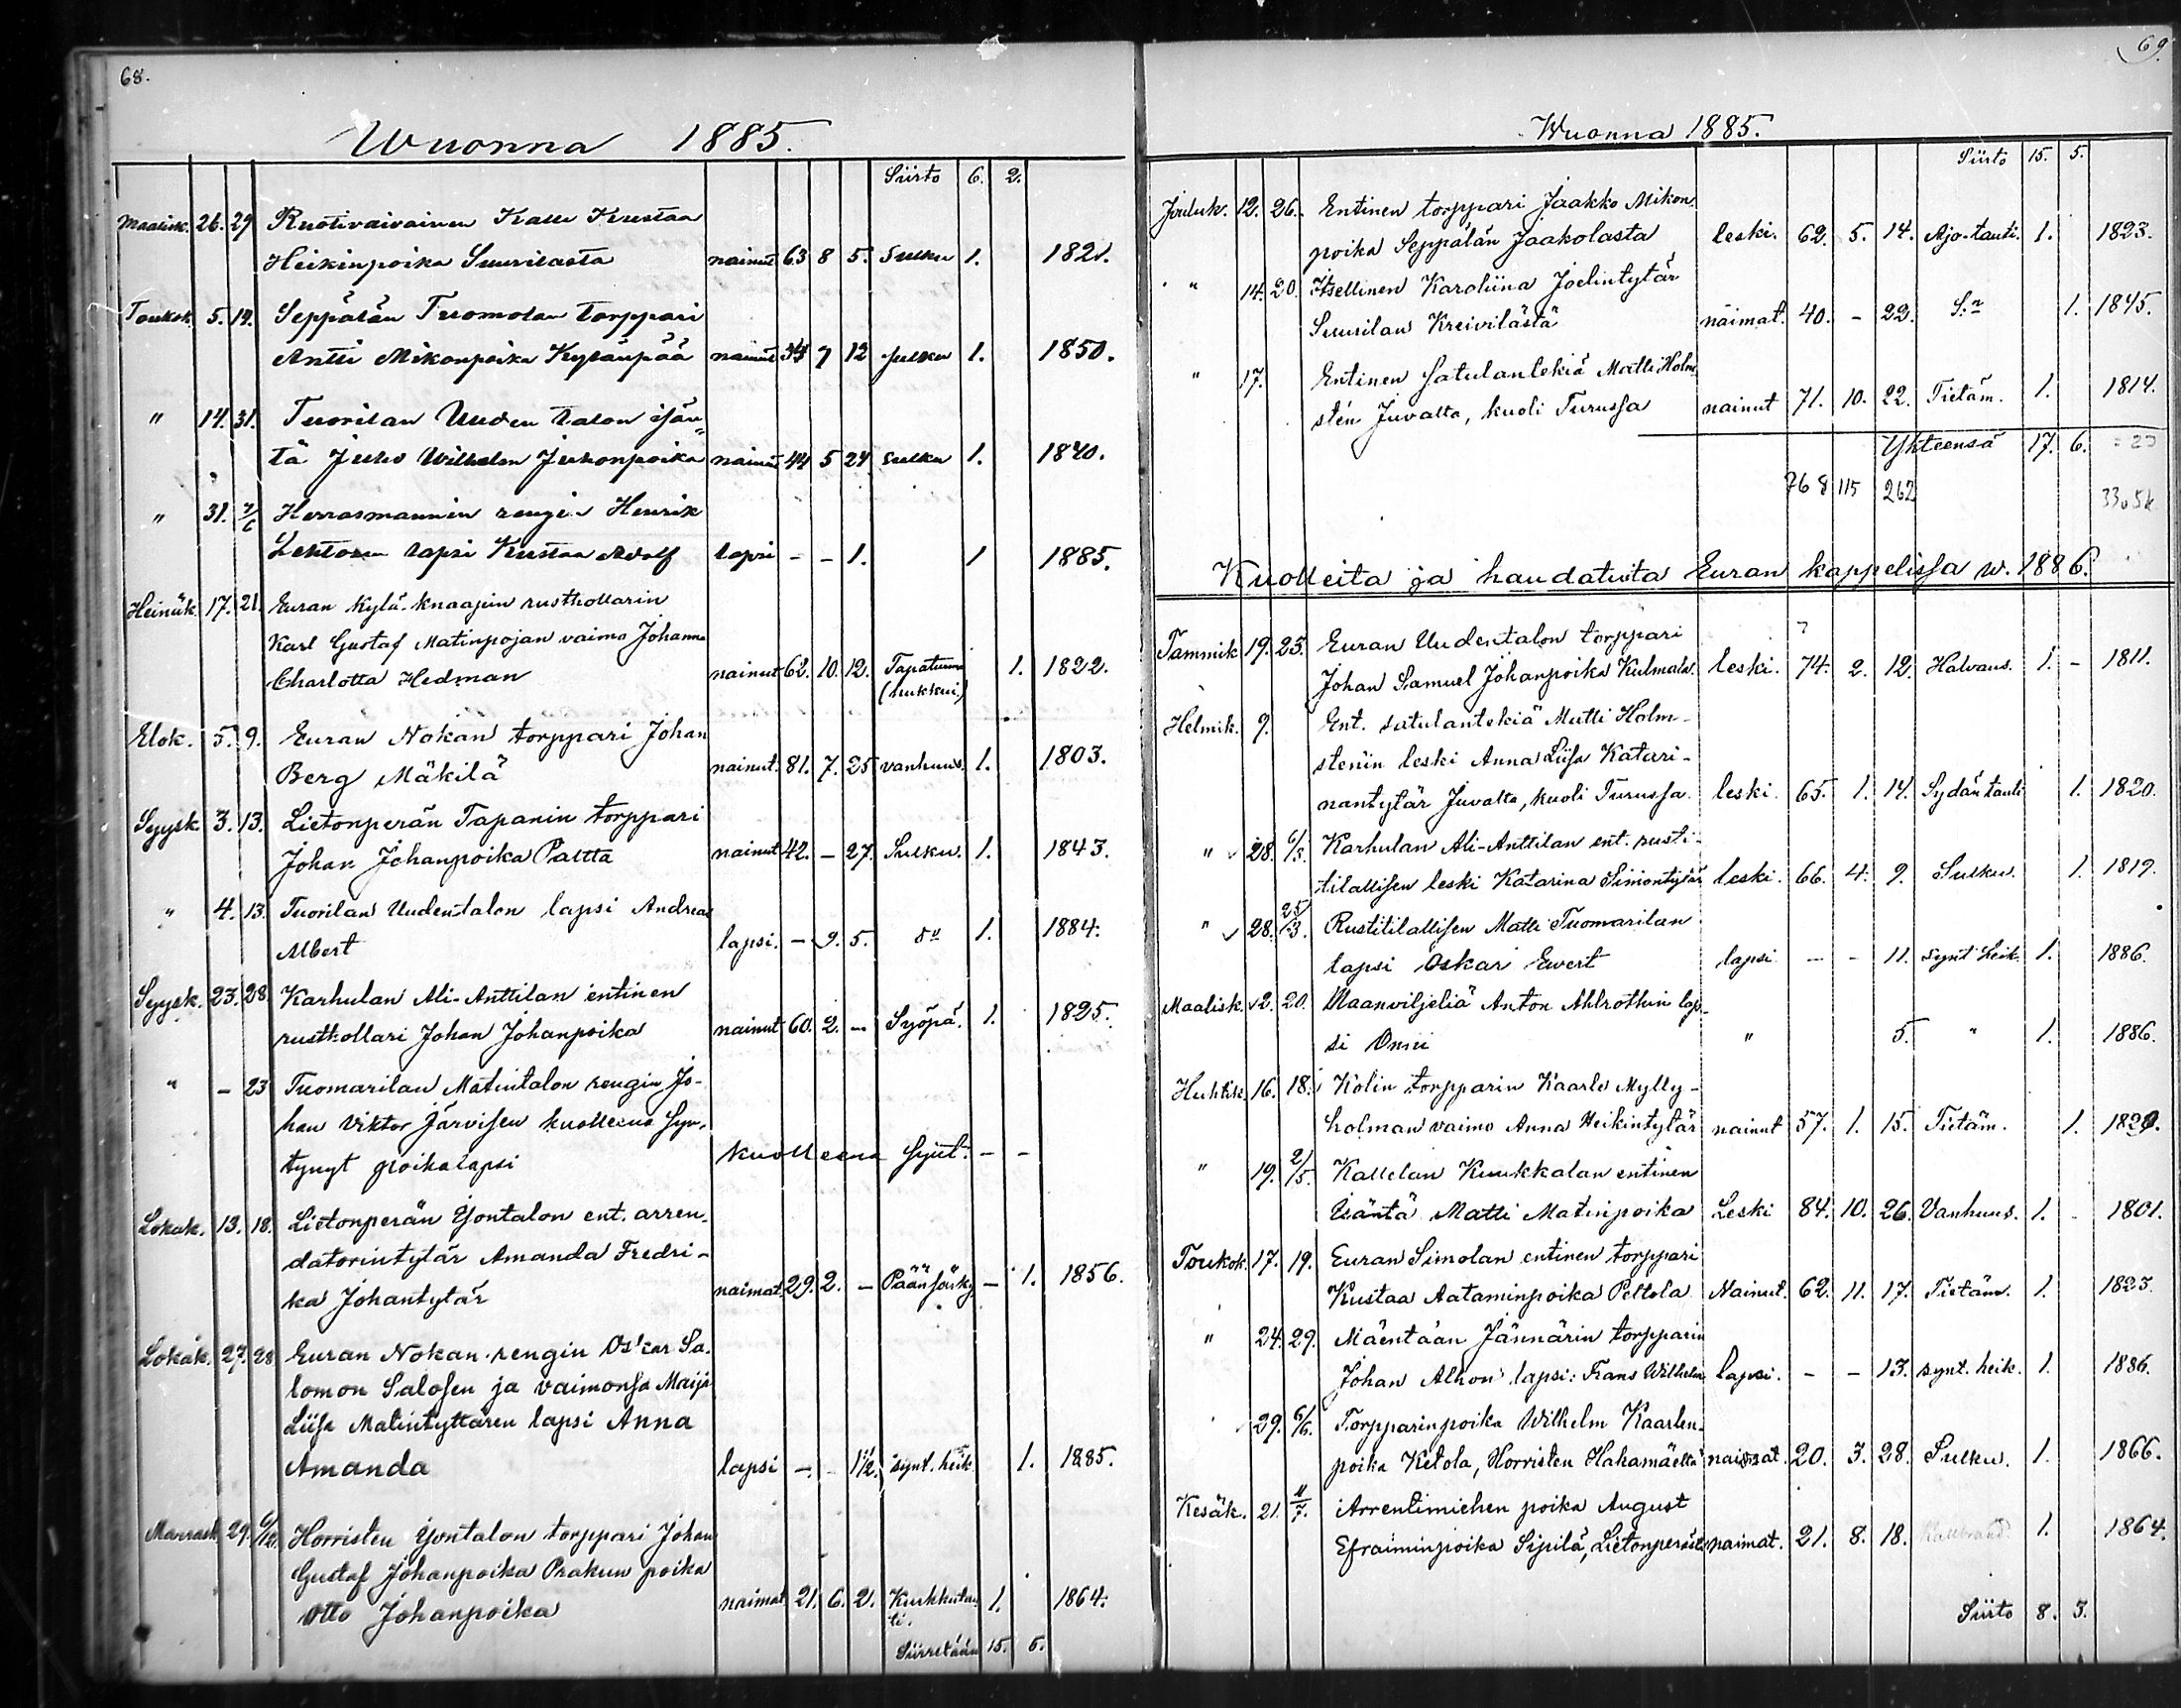 68.
Wuonna 1885.
Siirto 6. 2.
Maalisk. 26. 29 Ruotivaivainen Kalle Kustaa
Heikinpoika Suurilasta nainut 63 8 5. Sulku 1. 1821.
Toukok. 5. 14. Seppälän Tuomolan torppari
Antti Mikonpoika Kylänpää nainut 34 7 12 sulku 1. 1850.
" 14. 31. Tuorilan Uuden talon isän-
tä Juho Wilhelm Juhonpoika nainut 44 5 24 sulku 1. 1840.
" 31. Herrasmannin rengin Henrik
lapsi Kustaa Adolf lapsi - - 1. 1 1885.
Heinäk. 17. 21. Euran Kylä-knaapin rusthollarin
Karl Gustaf Matinpojan vaimo Johanna
Charlotta Hedman nainut 62. 10. 12. Tapaturma (hukkui) 1. 1822.
Elok. 5. 9. Euran Nokan torppari Johan
Berg Mäkilä nainut. 81. 7. 25 vanhuus. 1. 1803.
Syysk. 3. 13. Lietonperän Tapanin torppari
Johan Johanpoika Paltta nainut 42. - 27. Sulku. 1. 1843.
" 4. 13. Tuorilan Uudentalon lapsi Andreas
Albert lapsi. - 9. 5. 1. 1884.
Syysk. 23. 28. Karhulan Ali-Anttilan entinen
rusthollari Johan Johanpoika nainut 60. 2. - Syöpä. 1. 1825.
" - 23 Tuomarilan Matintalon rengin Jo-
han Viktor Järvisen kuolleena syn-
tynyt poikalapsi kuolleena synt. - -
Lokak. 13. 18. Lietonperän Yontalon ent. arren-
datorintytär Amanda Fredri-
ka Johantytär naimat. 29. 2. - Päänsärky - 1. 1856.
Lokak. 27. 28 Euran Nokan rengin Oskar Sa-
lomon Salosen ja vaimonsa Maija
Liisa Matintyttären lapsi Anna
Amanda lapsi - - 1½. synt. heik. 1. 1885.
Marrask. 29. 6/12. Horristen Yontalon torppari Johan
Gustaf Johanpoika Prakun poika
Otto Johanpoika naimat 21. 6. 2. Kurkkutau-
ti. 1. 1864.
Siirretään 15. 5.
69.
Wuonna 1885.
Siirto 15. 5.
Jouluk. 12. 26. Entinen torppari Jaakko Mikon-
poika Seppälän Jaakolasta leski. 62. 5. 14. Ajo-tauti. 1. 1823.
" 14. 20. Itsellinen Karoliina Joelintytär
Suurilan Kreivilästä naimat. 40. - 22. 1. 1845.
" 17. Entinen satulantekiä Matti Holm-
stén Juvalta, kuoli Turussa nainut 71. 10. 22. Tietäm. 1. 1814.
Yhteensä 17. 6. = 23
768 115 262
Kuolleita ja haudatuita Euran kappelissa w. 1886.
Tammik 19. 23. Euran Uudentalon torppari
Johan Samuel Johanpoika Kulmala. leski. 74. 2. 12. Halvaus. 1. - 1811.
Helmik. 9. Ent. satulantekiä Matti Holm-
sténin leski Anna Liisa Katari-
nantytär Juvalta, kuoli Turussa. leski. 65. 1. 14. Sydäntauti 1. 1820.
" 28. 6/3. Karhulan Ali-Anttilan ent. rusti-
tilallisen leski Katarina Simontytär leski. 66. 4. 9. Sulku. 1. 1819.
" 28. 25/3. Rustitilallisen Matti Tuomarilan
lapsi Oskari Ewert lapsi - - 11. synt heik. 1. 1886.
Maalisk. 2. 20. Maanviljeliä Anton Ahlrothin lap-
si Onni " 5. " 1. 1886.
Huhtik. 16. 18. Kolin torpparin Kaarlo Mylly-
holman vaimo Anna Heikintytär nainut 57. 1. 15. Tietäm. 1. 1829.
" 19. 2/5. Kallelan Kuukkalan entinen
Isäntä Matti Matinpoika Leski 84. 10. 26. Vanhuus. 1. - 1801.
Toukok. 17. 19. Euran Simolan entinen torppari
Kustaa Aataminpoika Peltola Nainut. 62. 11. 17. Tietäm. 1. 1823.
" 24. 29. Mäentaan Jännärin torpparin
Johan Alhon lapsi: Frans Wilhelm lapsi. - - 13. synt. heik. 1. 1886.
29. 6/6. Torpparinpoika Wilhelm Kaarlen-
poika Ketola, Horristen Hahamäeltä naimat. 20. 3. 28. Sulku. 1. 1866.
Kesäk. 21. 11/7. Arrentimiehen poika August
Efraiminpoika Sipilä, Lietonperästä naimat. 21. 8. 18. 1. 1864.
Siirto 8. 3.